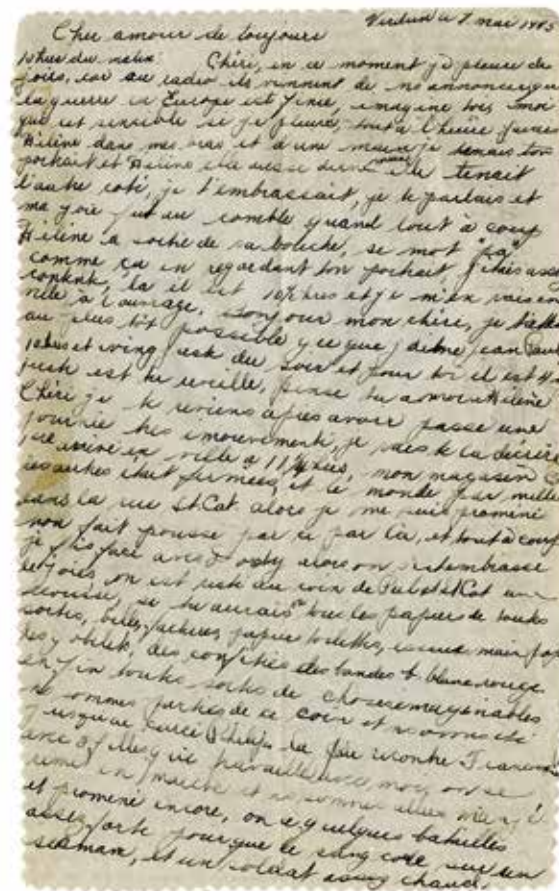 Verdun le 7 mai 1945
Cher amour de toujours
10 hres du matin Chéri, en ce moment je pleure de
joies, car au radio ils viennent de nous annoncer que
la guerre en Europe est finie, imagine toi, moi
que est sensible se je pleure, tout à l'heure j'avais
Hélène dans mes bras et d'une main je tenais ton
portrait et Hélène elle aussi tenait
l'autre coté, je t'embrassait, je te parlais et
ma joie fut au comble quand tout à coup
Hélène a sortie de sa bouche, se mot "pa"
comme ça en regardant ton portrait j'étais assez
contente, la il est 10½ hres et je m'en vais en
ville à l'ouvrage, bonjour mon chéri, je
au plus tôt possible y ce que j'aime Jean Paul
10 hres et ving just du soir et pour toi il est 4
juste est tu reveille, pense tu a moi Hélène
Chéri je te reviens après avoir passé une
journée très emouvement, je vais te la décrire
arrivé en ville à 11¼ hres, mon magasin
les autres était fermées, et le monde par mille
dans la rue St. Cat alors je me suis promené
non fait poussé par ci par la, et tout à coup
je face avec alors on s'etembrasse
de joies, on est resté au coin de Peel et St Cat une
secousse, se tu aurais vu tous les papiers de toutes
sortes, papier toilettes, essuie main
des confities des bandes b. blanc rouge
enfin toutes sortes de choses imaginables
nous sommes parties de ce coin et nous avons été
jusqu'au la j'ai rencontré
avec 3 filles qui travaille avec moi, on se
remi en marche et nous sommes allés
et promené encore, on a quelques batailles
assez forte pour que le sang coule sur un
et un soldat assez chaud